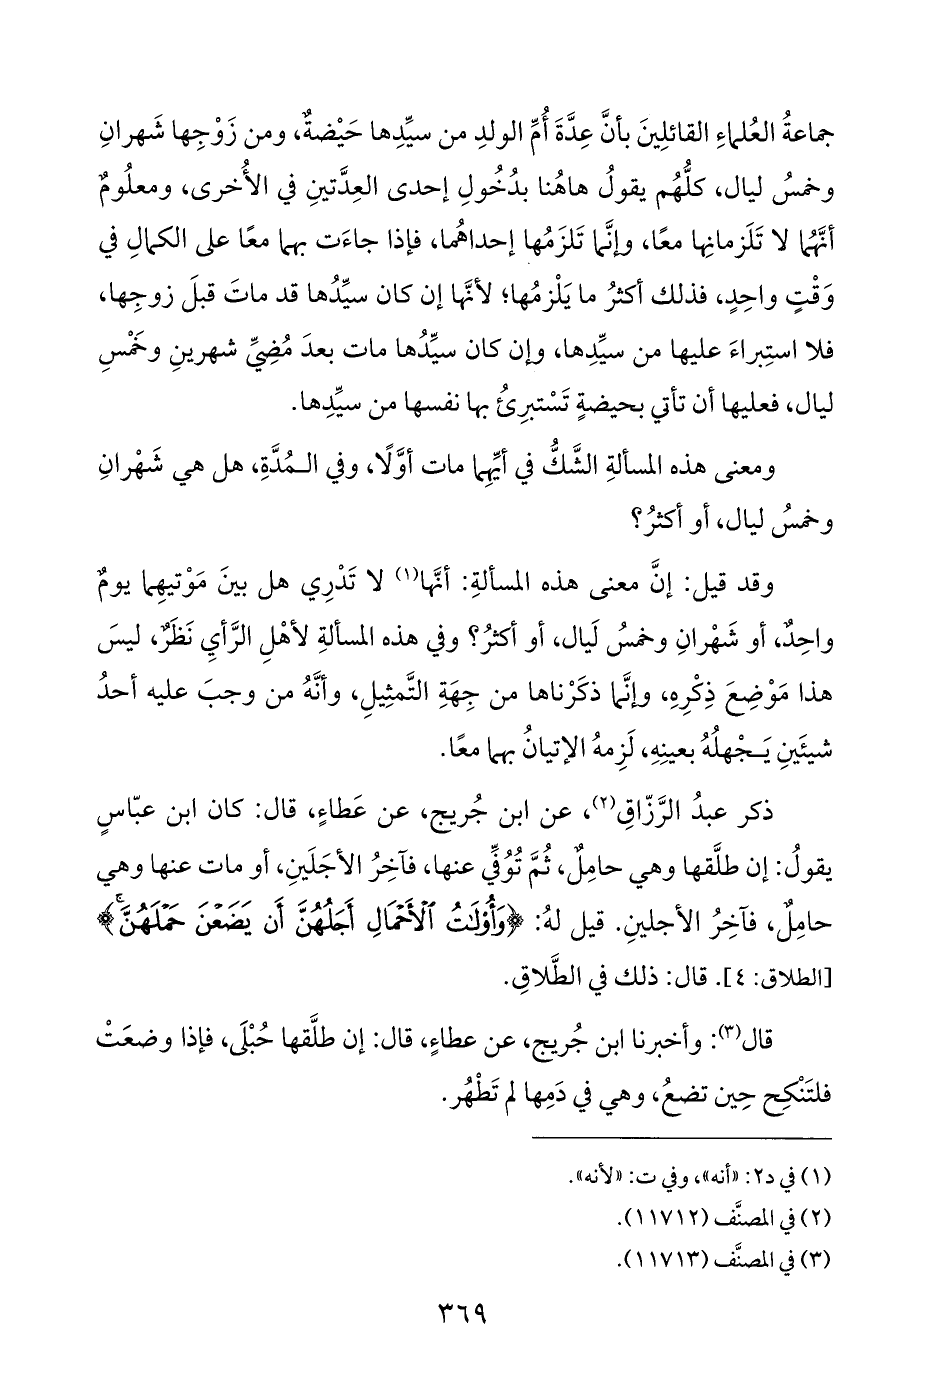 جماعةُ العُلماءِ القائلِينَ بأنَّ عِدَّةَ أُمِّ الولدِ من سيِّدِها حَيْضةٌ، ومن زَوْجِها شَهرانِ
وخمسُ ليال، كلُّهُم يقولُ هاهُنا بدُخُولِ إحدى العِدَّتينِ في الأُخرى، ومعلُومٌ
أنَّهُما لا تَلَزمانِها معًا، وإنَّما تَلزَمُها إحداهُما، فإذا جاءَت بهما معًا على الكمالِ في
وَقْتٍ واحِدٍ، فذلك أكثرُ ما يَلْزمُها؛ لأنَّها إن كان سيِّدُها قد ماتَ قبلَ زوجِها،
فلا استِبراءَ عليها من سيِّدِها، وإن كان سيِّدُها مات بعدَ مُضِيِّ شهرينِ وخَمْسِ
ليال، فعليها أن تأتي بحيضةٍ تَسْتبرِئُ بها نفسها من سيِّدِها.
ومعنى هذه المسألةِ الشَّكُّ في أيِّهِما مات أوَّلًا، وفي الـمُدَّةِ، هل هي شَهْرانِ
وخمسُ ليال، أو أكثرُ؟
وقد قيل: إنَّ معنى هذه المسألةِ: أنَّها(١) لا تَدْرِي هل بينَ مَوْتيهِما يومٌ
واحِدٌ، أو شَهْرانِ وخمسُ لَيال، أو أكثرُ؟ وفي هذه المسألةِ لأهْلِ الرَّأيِ نَظَرٌ، ليسَ
هذا مَوْضِعَ ذِكْرِهِ، وإنَّما ذكَرْناها من جِهَةِ التَّمثِيلِ، وأنَّهُ من وجبَ عليه أحدُ
شيئَينِ يَـجْهلُهُ بعينِهِ، لَزِمهُ الإتيانُ بهما معًا.
ذكر عبدُ الرَّزّاقِ(٢)، عن ابن جُريج، عن عَطاءٍ، قال: كان ابن عبّاسٍ
يقولُ: إن طلَّقها وهي حامِلٌ، ثُمَّ تُوُفِّي عنها، فآخِرُ الأجَلَينِ، أو مات عنها وهي
حامِلٌ، فآخِرُ الأجلينِ. قيل لهُ: ﴿وَأُوْلَٰتُ ٱلْأَحْمَالِ أَجَلُهُنَّ أَن يَضَعْنَ حَمْلَهُنَّۚ﴾
[الطلاق: ٤]. قال: ذلك في الطَّلاقِ.
قال(٣): وأخبرنا ابن جُريج، عن عطاءٍ، قال: إن طلَّقها حُبْلَى، فإذا وضعَتْ
فلتَنْكِح حِين تضعُ، وهي في دَمِها لم تَطْهُر.
(١) في د٢: «أنه»، وفي ت: «لأنه».
(٢) في المصنَّف (١١٧١٢).
(٣) في المصنَّف (١١٧١٣).
٣٦٩